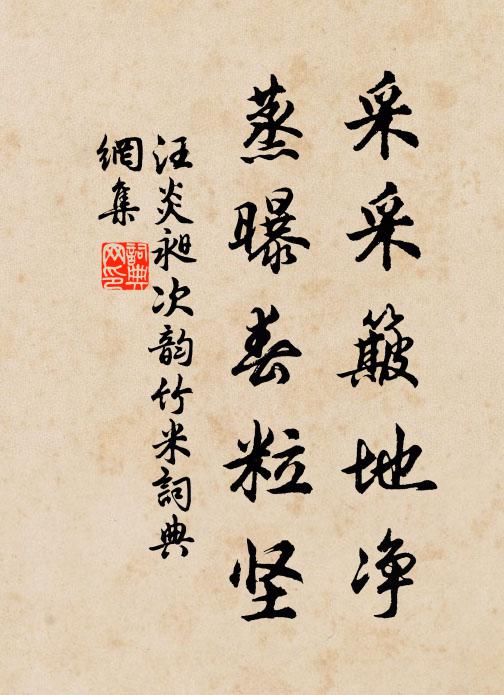 采采簸地净
蒸曝舂粒坚
汪炎昶次韵竹米詞典
網集
詞典
网印